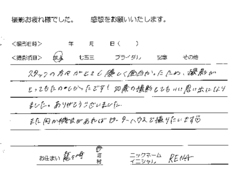 撮影お疲れ様でした。 感想をお願いいたします。
<撮影日時> 年 月 日( )
<撮影項目> 七五三 ブライダル 記念 その他
スタッフの方々がとても優しく面白かったため、撮影が
とってもたのしかったです! 20歳の撮影としてもいい思い出になり
ました。ありがとうございました。
また何か機会があればピーターハウスで撮りたいです
お住まい ニックネーム イニシャル RENA